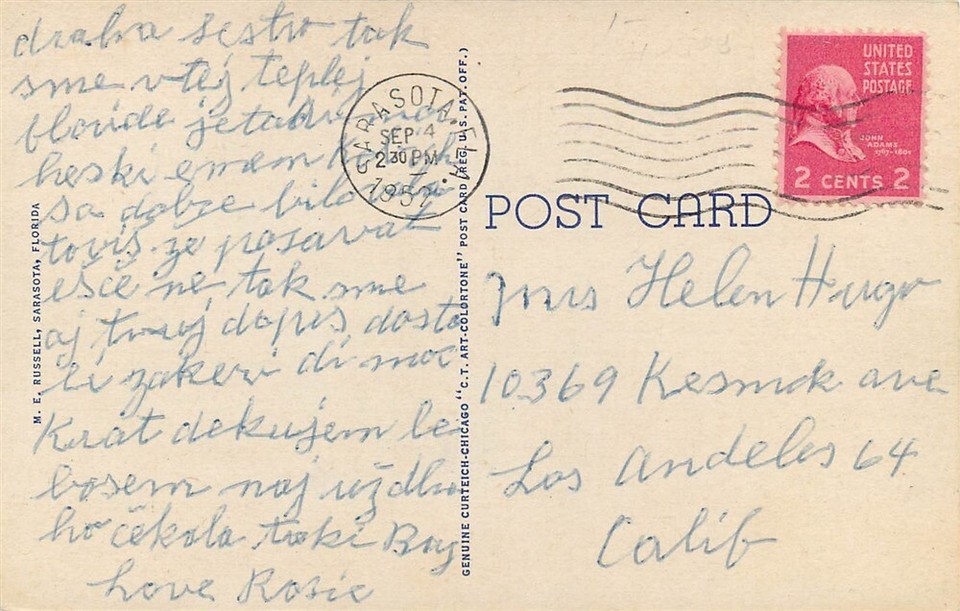 draha sestro tak
sme v tej teplej
floride je tak
heski
sa dobre bilo
toviš ze posavat
ešce ne tak sme
aj tvoj dopis dosta
li zakeri di moc
Krat dekujem le
bosem naj uždlu
ho čekola taki Bay
Love Rosie
M. E. RUSSELL, SARASOTA, FLORIDA
GENUINE CURTEICH-CHICAGO "C.T. ART-COLORTONE" POST CARD (REG. U.S. PAT. OFF.)
SARASOTA, FLA.
SEP 4
2 30 PM
1952
UNITED
STATES
POSTAGE
JOHN
ADAMS
1797-1801
2 CENTS 2
POST CARD
Mrs Helen Hugo
10369 Kesmick ave
Los Andeles 64
Calif